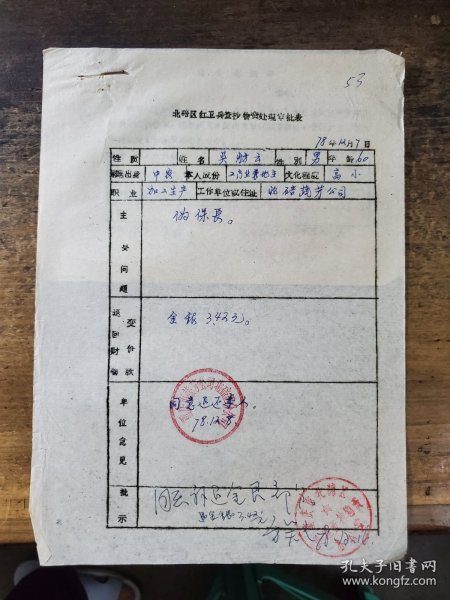 53
北碚区红卫兵查抄物资处理审批表
78年12月7日
性质 姓名 吴 性别 男 年龄 60
家庭出身 中农 本人成份 工商业兼地主 文化程度 高小
职业 加工生产 工作单位或住址 北碚 公司
主要问题
伪保长。
退回财物 变价款
金银3.43元。
单位意见
同意退还本人。
78.12.8
批示
同意
金银3.43元
孔夫子旧书网
kongfz.com